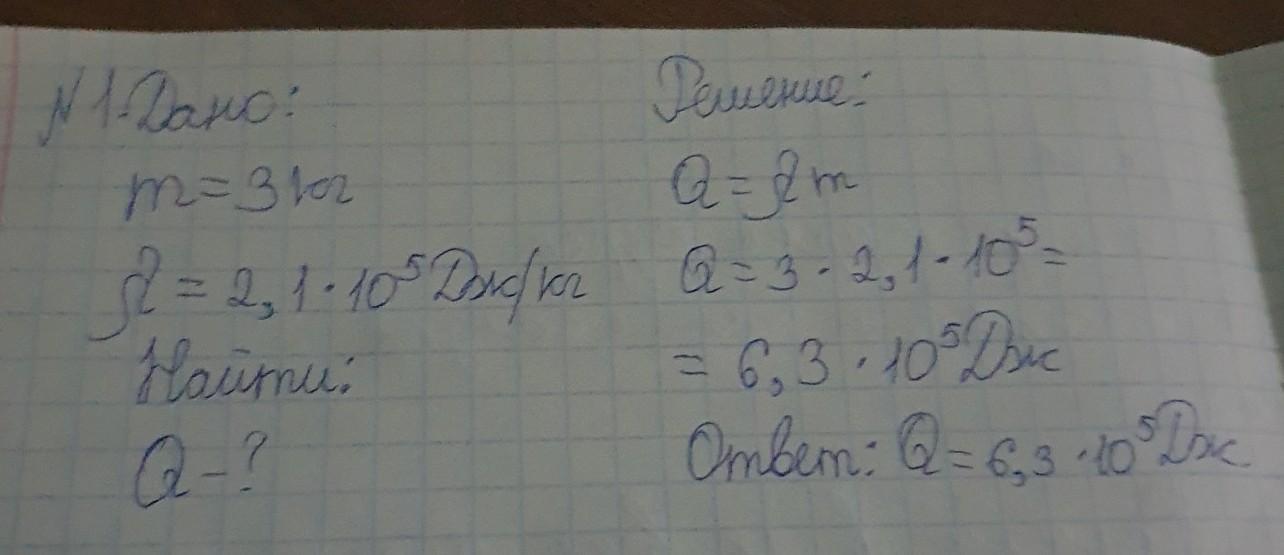 №1. Дано:
m = 3 кг
λ = 2,1 · 10⁵ Дж/кг
Найти:
Q - ?
Решение:
Q = λm
Q = 3 · 2,1 · 10⁵ =
= 6,3 · 10⁵ Дж
Ответ: Q = 6,3 · 10⁵ Дж